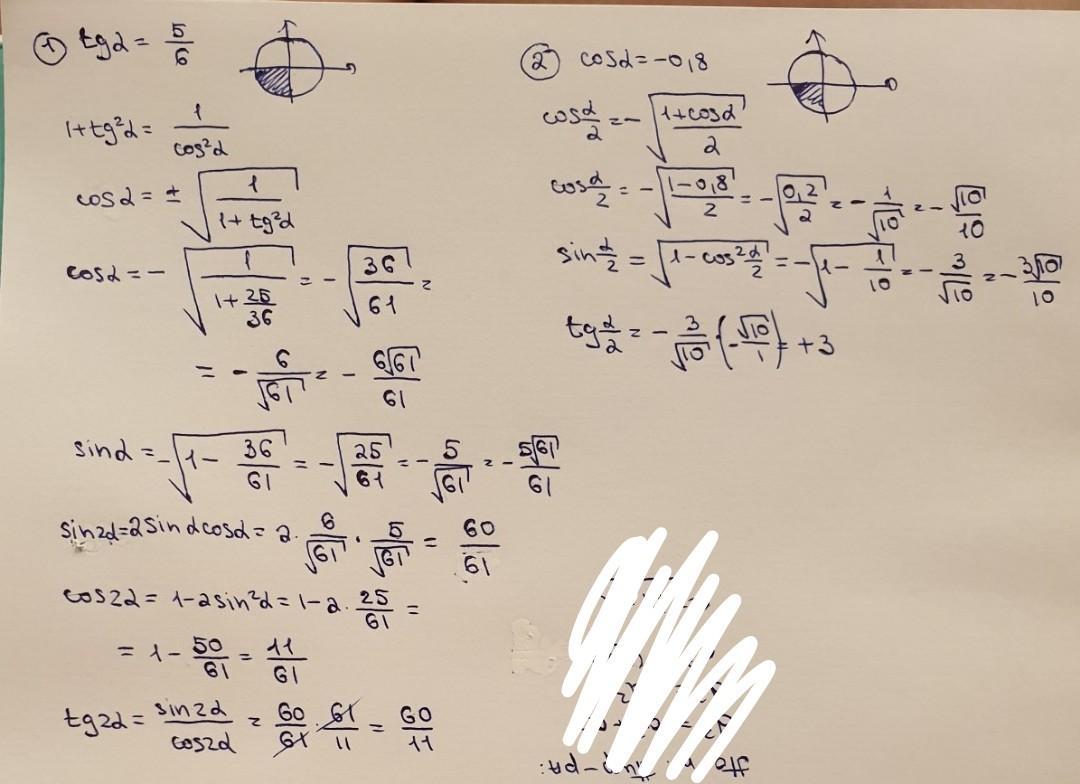 ① tgα = 5/6
1+tg²α = 1/cos²α
cosα = ± √(1/(1+tg²α))
cosα = - √(1/(1+25/36)) = - √(36/61) =
= - 6/√61 = - 6√61/61
sinα = -√(1- 36/61) = -√(25/61) = - 5/√61 = - 5√61/61
sin2α=2sinαcosα= 2· 6/√61 · 5/√61 = 60/61
cos2α = 1-2sin²α = 1-2· 25/61 =
= 1- 50/61 = 11/61
tg2α = sin2α/cos2α = 60/61 · 61/11 = 60/11
② cosα = -0,8
cos α/2 = - √((1+cosα)/2)
cos α/2 = -√((1-0,8)/2) = -√(0,2/2) = - 1/√10 = - √10/10
sin α/2 = √(1-cos² α/2) = -√(1- 1/10) = - 3/√10 = - 3√10/10
tg α/2 = - 3/√10 · (- √10/1) = +3